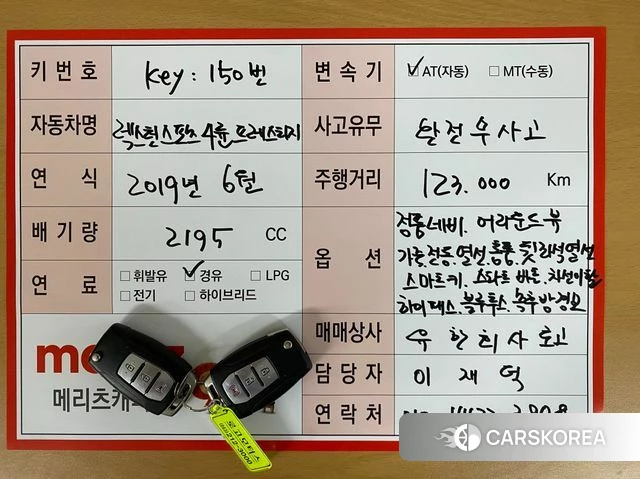 키 번호 Key : 150번
변속기 ☑ AT(자동) □ MT(수동)
자동차명 렉스턴스포츠 4륜 프레스티지
사고유무 완전무사고
연 식 2019년 6월
주행거리 123.000 Km
배기량 2195 CC
옵 션 정품네비. 어라운드뷰
가죽,전동.열선.통풍.뒷좌석열선
스마트키. 스타트버튼. 차선이탈
하이패스.블루투스.후측방경보
연 료 □ 휘발유 ☑ 경유 □ LPG
□ 전기 □ 하이브리드
매매상사 유한회사 로고
담당자 이재덕
연락처
메리츠캐
로고모터스
212-3000
CARSKOREA